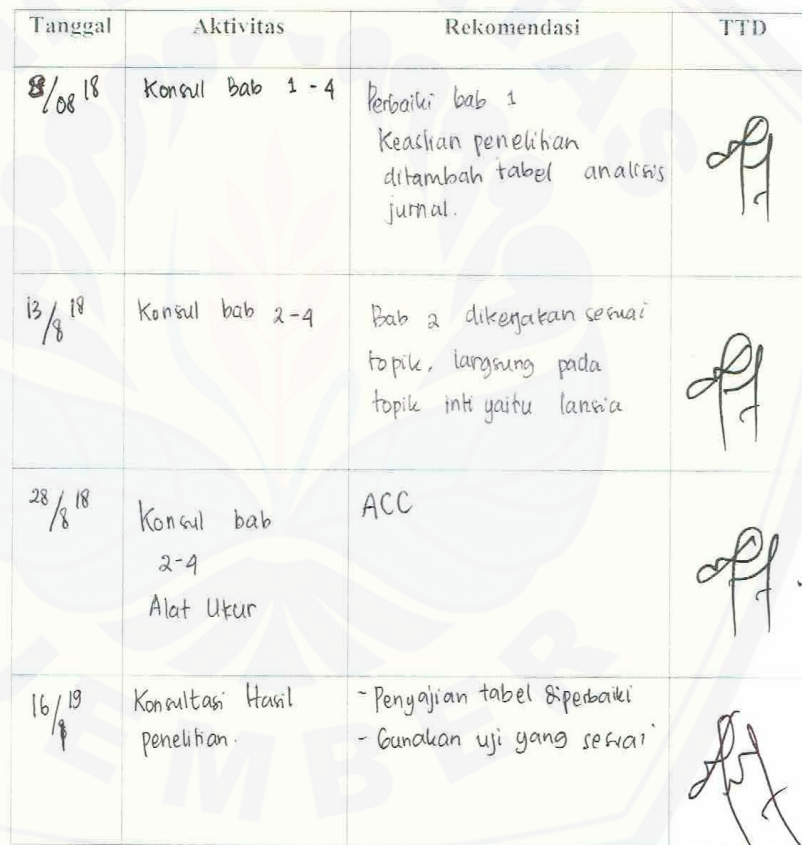 Tanggal Aktivitas Rekomendasi TTD
8/08 18 Konsul Bab 1 - 4 Perbaiki bab 1
Keaslian penelitian
ditambah tabel analisis
jurnal.
13/8 18 Konsul bab 2-4 Bab 2 dikerjakan sesuai
topik, langsung pada
topik inti yaitu lansia
28/8 18 Konsul bab
2-4
Alat Ukur
ACC
16/ 19 Konsultasi Hasil
penelitian.
- Penyajian tabel diperbaiki
- Gunakan uji yang sesuai
EMBER